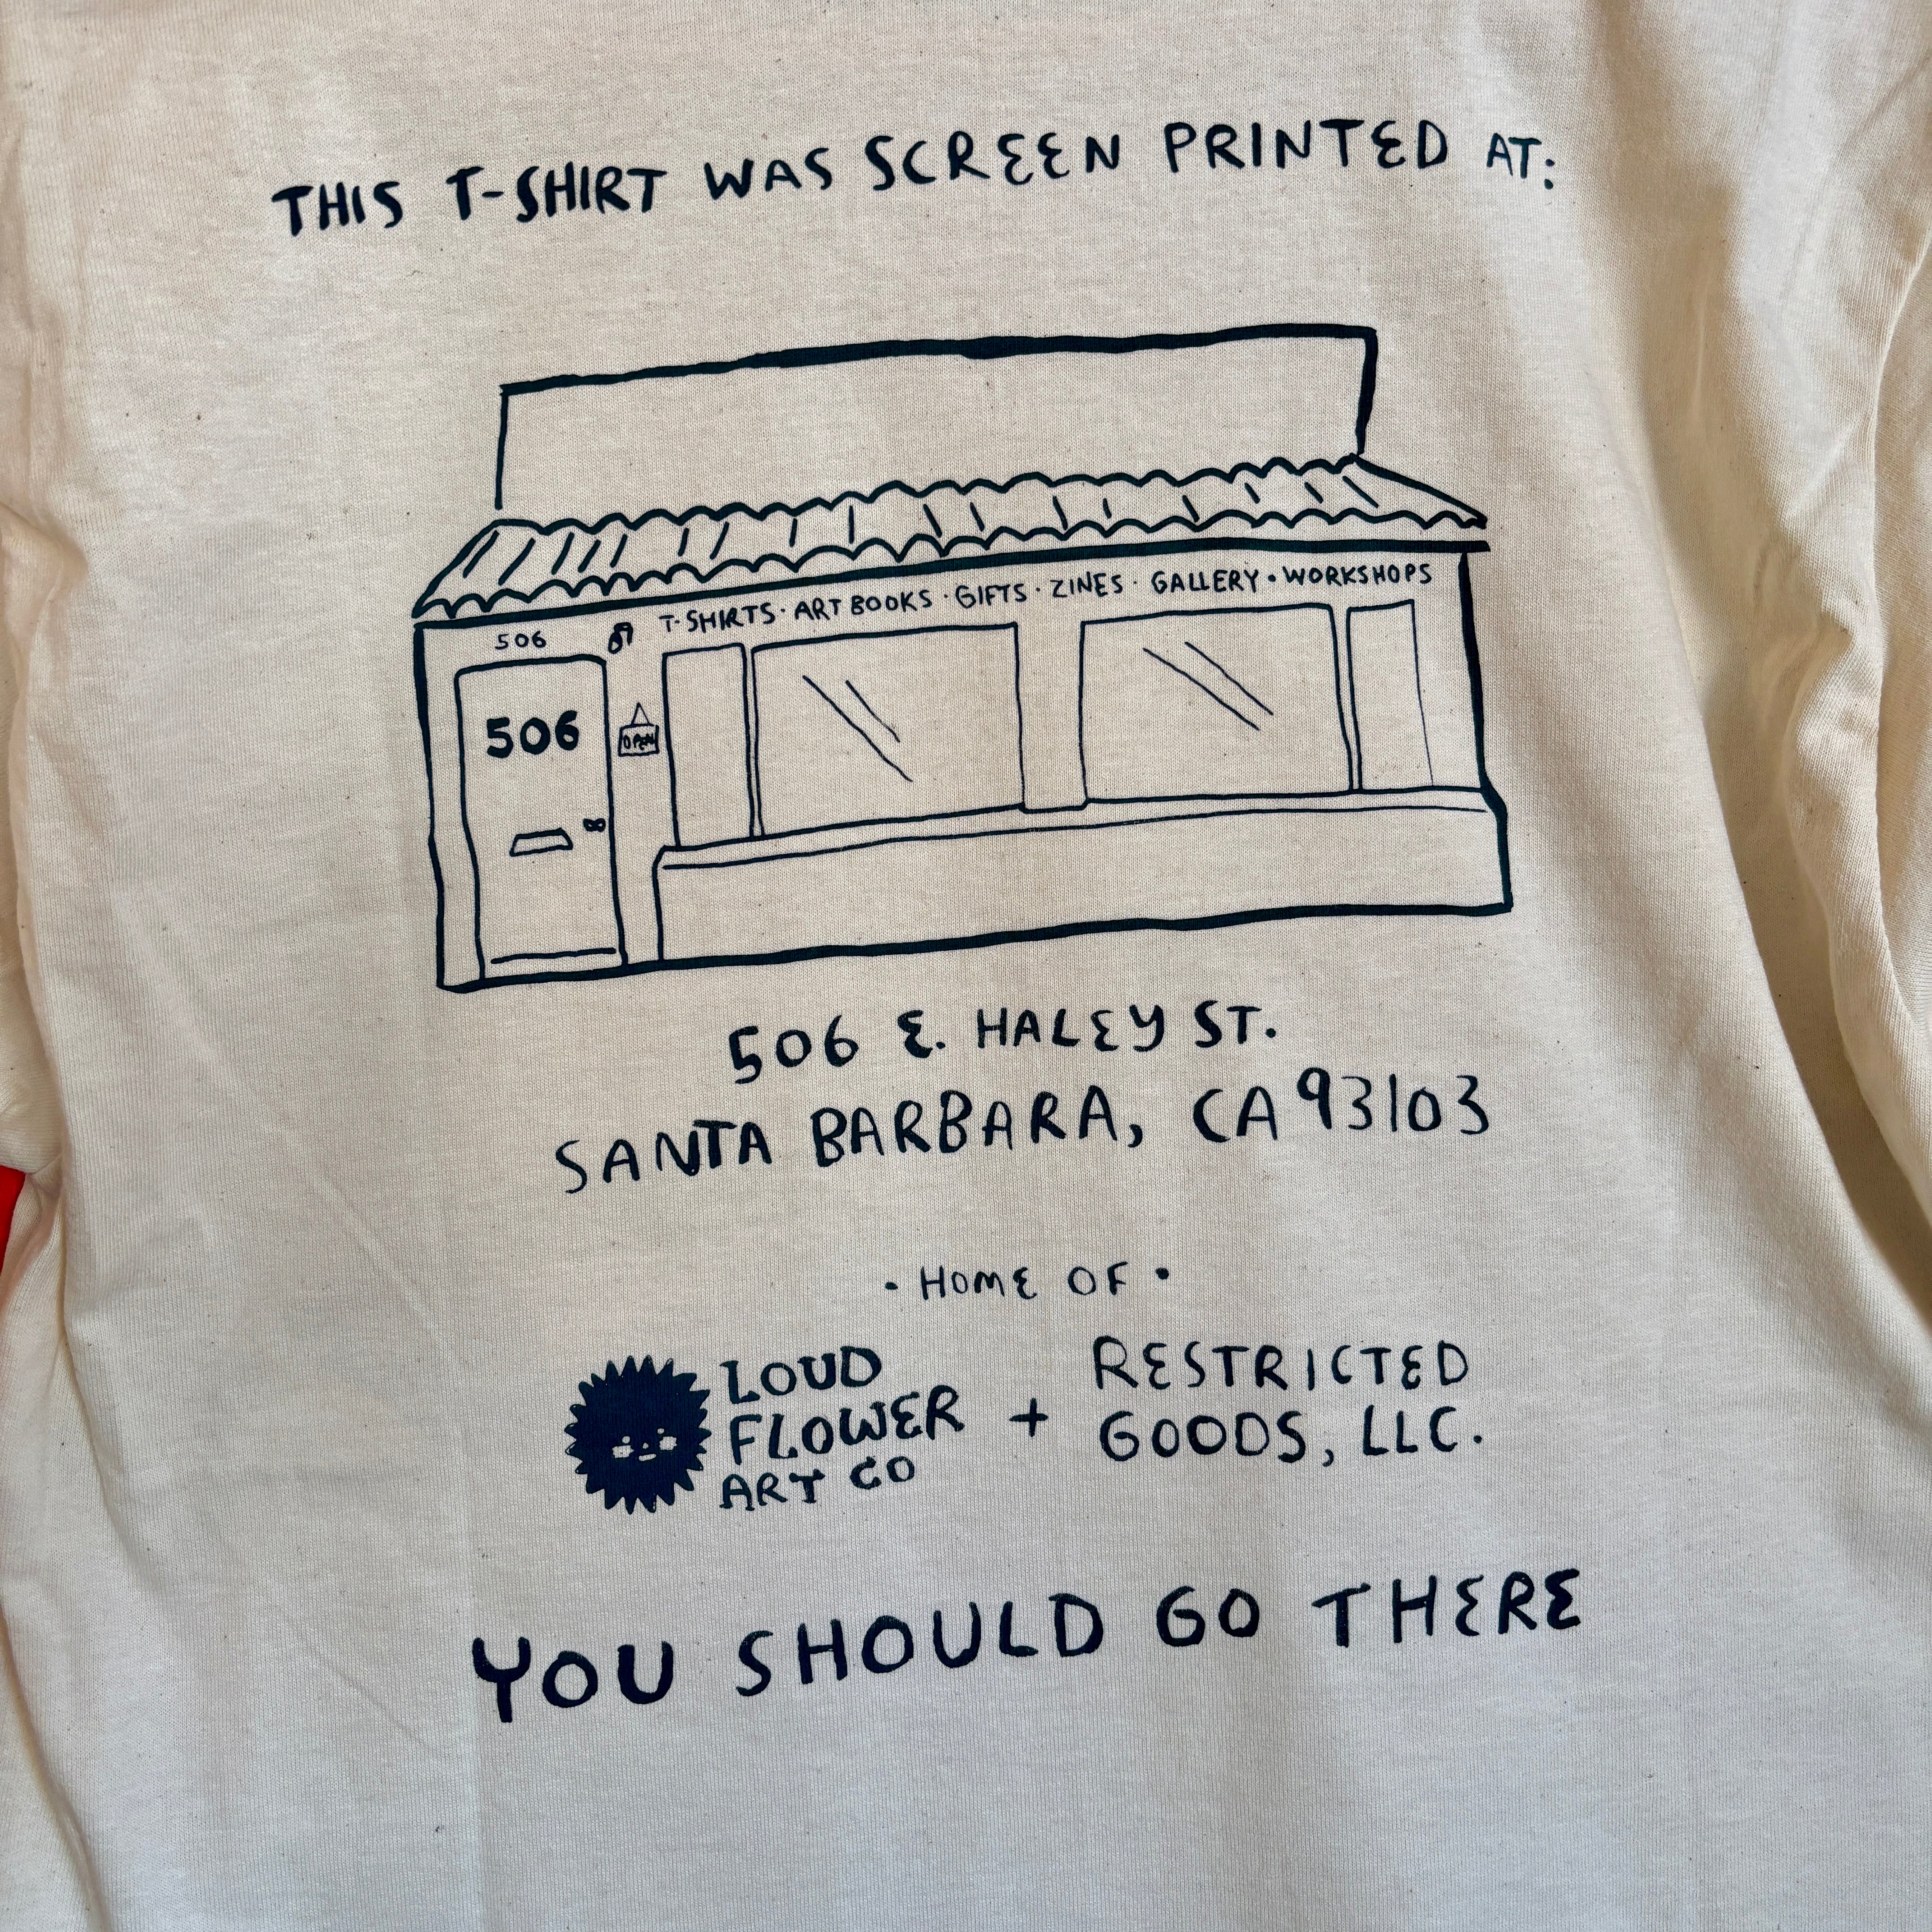 THIS T-SHIRT WAS SCREEN PRINTED AT:
T-SHIRTS · ART BOOKS · GIFTS · ZINES · GALLERY · WORKSHOPS
506
506
OPEN
506 E. HALEY ST.
SANTA BARBARA, CA 93103
· HOME OF ·
LOUD
FLOWER
ART CO
+
RESTRICTED
GOODS, LLC.
YOU SHOULD GO THERE